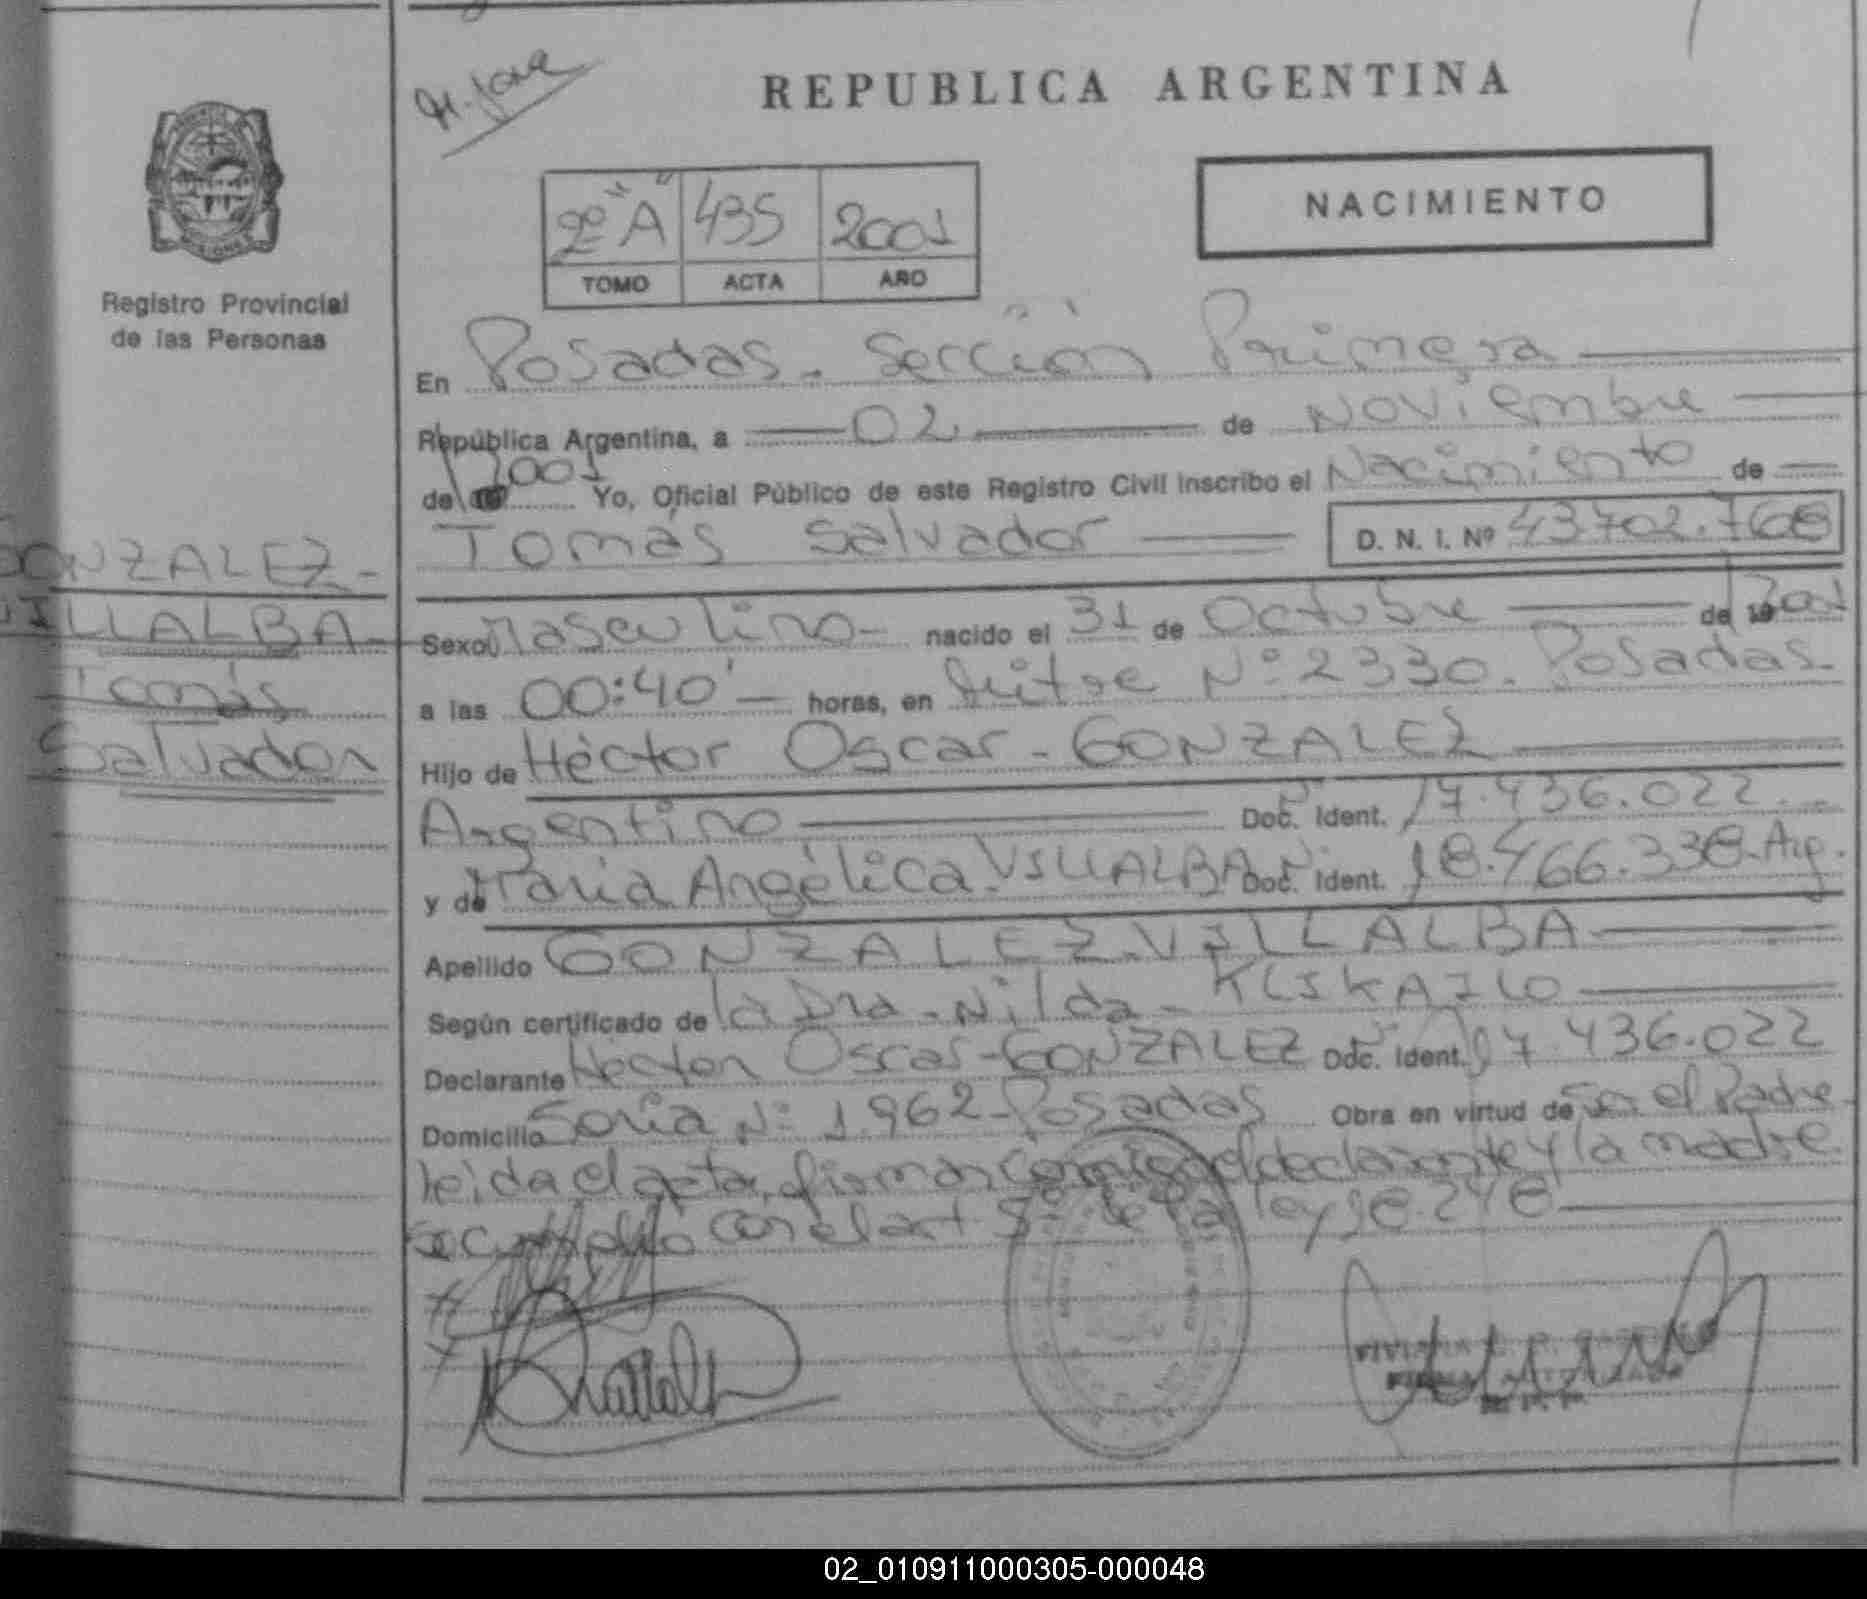 REPUBLICA ARGENTINA
NACIMIENTO
2º "A" 435 2001
TOMO ACTA AÑO
Registro Provincial
de las Personas
En Posadas. Sección Primera
República Argentina, a 02 de Noviembre
de 2001 Yo, Oficial Público de este Registro Civil inscribo el Nacimiento de
Tomás Salvador D. N. I. Nº 43702.768
GONZALEZ-
VILLALBA-
Tomás
Salvador
Sexo Masculino- nacido el 31 de Octubre de 19 2001
a las 00:40' horas, en Mitre Nº 2330. Posadas-
Hijo de Héctor Oscar - GONZALEZ
Argentino Doc. Ident. 17.436.022
y de Maria Angélica. VILLALBA Doc. Ident. 18.466.338-Arg.
Apellido GONZALEZ-VILLALBA
Según certificado de la Dra. Nilda-
Declarante Hector Oscar-GONZALEZ Doc. Ident. 17.436.022
Domicilio Soria Nº 1.962-Posadas Obra en virtud de Ser el Padre-
leida el acta, firman conmigo el declarante y la madre
se cumplio con el art. 5º de la ley 18.248
02_010911000305-000048